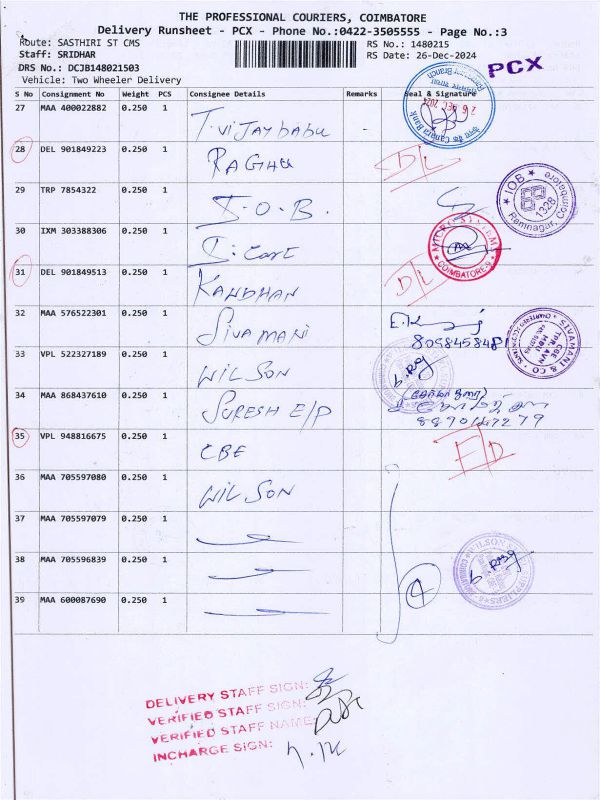 THE PROFESSIONAL COURIERS, COIMBATORE
Delivery Runsheet - PCX - Phone No.:0422-3505555 - Page No.:3
Route: SASTHIRI ST CMS
RS No.: 1480215
Staff: SRIDHAR
RS Date: 26-Dec-2024
DRS No.: DCJB148021503
PCX
Vehicle: Two Wheeler Delivery
S No Consignment No Weight PCS Consignee Details Remarks Seal & Signature
27 MAA 400022882 0.250 1 T. vijaybabu -
Canara Bank
26 DEC 2024
28 DEL 901849223 0.250 1 RAGHU D/L
29 TRP 7854322 0.250 1 I.O.B.
IOB
1328
Ramnagar, Coimbatore
30 IXM 303388306 0.250 1
COIMBATORE-9
31 DEL 901849513 0.250 1 KANDHAN D/L
32 MAA 576522301 0.250 1 SIVA MANI
SIVAMANI & CO
CBE
33 VPL 522327189 0.250 1 WILSON
34 MAA 868437610 0.250 1 SURESH E/P
8890147279
35 VPL 948816675 0.250 1 CBE E/D
36 MAA 705597080 0.250 1 WILSON
37 MAA 705597079 0.250 1
38 MAA 705596839 0.250 1
4
39 MAA 600087690 0.250 1
DELIVERY STAFF SIGN:
VERIFIED STAFF SIGN:
VERIFIED STAFF NAME:
INCHARGE SIGN: